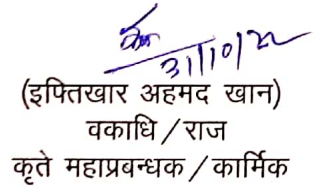 31/10/22
(इफ्तिखार अहमद खान)
वकाधि / राज
कृते महाप्रबन्धक / कार्मिक